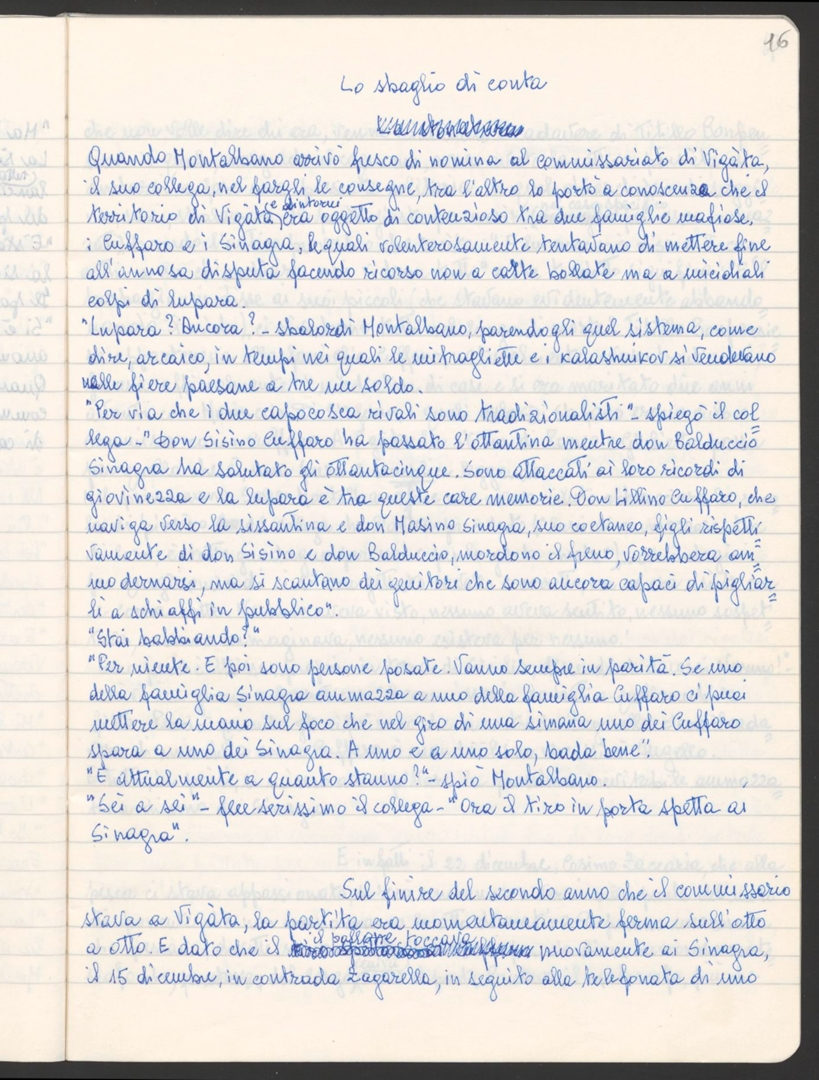 16
Lo sbaglio di conta
Quando Montalbano arrivò fresco di nomina al commissariato di Vigàta,
il suo collega, nel fargli le consegne, tra l'altro lo portò a conoscenza che il
territorio di Vigàta (e dintorni) era oggetto di contenzioso tra due famiglie mafiose,
i Cuffaro e i Sinagra, le quali volenterosamente tentavano di mettere fine
all'annosa disputa facendo ricorso non a carte bollate ma a micidiali
colpi di lupara.
"Lupara? Ancora?" - sbalordì Montalbano, parendogli quel sistema, come
dire, arcaico, in tempi nei quali le mitragliette e i kalashnikov si vendevano
nelle fiere paesane a tre un soldo.
"Per via che i due capocosca rivali sono tradizionalisti" - spiegò il col=
lega - "Don Sisino Cuffaro ha passato l'ottantina mentre don Balduccio
Sinagra ha salutato gli ottantacinque. Sono attaccati ai loro ricordi di
giovinezza e la lupara è tra queste care memorie. Don Lillino Cuffaro, che
naviga verso la sissantina e don Masino Sinagra, suo coetaneo, figli rispetti=
vamente di don Sisino e don Balduccio, mordono il freno, vorrebbero am=
modernarsi, ma si scantano dei genitori che sono ancora capaci di pigliar=
li a schiaffi in pubblico".
"Stai babbiando?"
"Per niente. E poi sono persone posate. Vanno sempre in parità. Se uno
della famiglia Sinagra ammazza a uno della famiglia Cuffaro ci puoi
mettere la mano sul foco che nel giro di una simana uno dei Cuffaro
spara a uno dei Sinagra. A uno e a uno solo, bada bene".
"E attualmente a quanto stanno?" - spiò Montalbano.
"Sei a sei" - fece serissimo il collega - "Ora il tiro in porta spetta ai
Sinagra".
Sul finire del secondo anno che il commissario
stava a Vigàta, la partita era momentaneamente ferma sull'otto
a otto. E dato che il pallone toccava nuovamente ai Sinagra,
il 15 dicembre, in contrada Zagarella, in seguito alla telefonata di uno